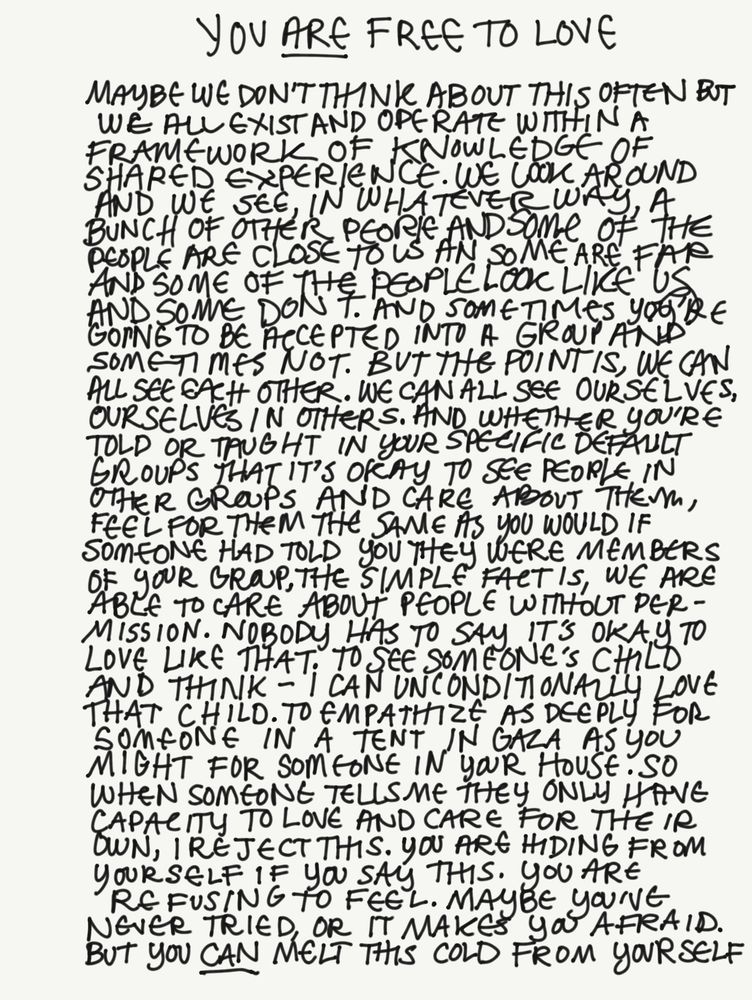 YOU ARE FREE TO LOVE
MAYBE WE DON'T THINK ABOUT THIS OFTEN BUT
WE ALL EXIST AND OPERATE WITHIN A
FRAMEWORK OF KNOWLEDGE OF
SHARED EXPERIENCE. WE LOOK AROUND
AND WE SEE, IN WHATEVER WAY, A
BUNCH OF OTHER PEOPLE AND SOME OF THE
PEOPLE ARE CLOSE TO US AN SOME ARE FAR
AND SOME OF THE PEOPLE LOOK LIKE US
AND SOME DON'T. AND SOMETIMES YOU'RE
GOING TO BE ACCEPTED INTO A GROUP AND
SOMETIMES NOT. BUT THE POINT IS, WE CAN
ALL SEE EACH OTHER. WE CAN ALL SEE OURSELVES,
OURSELVES IN OTHERS. AND WHETHER YOU'RE
TOLD OR TAUGHT IN YOUR SPECIFIC DEFAULT
GROUPS THAT IT'S OKAY TO SEE PEOPLE IN
OTHER GROUPS AND CARE ABOUT THEM,
FEEL FOR THEM THE SAME AS YOU WOULD IF
SOMEONE HAD TOLD YOU THEY WERE MEMBERS
OF YOUR GROUP, THE SIMPLE FACT IS, WE ARE
ABLE TO CARE ABOUT PEOPLE WITHOUT PER-
MISSION. NOBODY HAS TO SAY IT'S OKAY TO
LOVE LIKE THAT. TO SEE SOMEONE'S CHILD
AND THINK - I CAN UNCONDITIONALLY LOVE
THAT CHILD. TO EMPATHIZE AS DEEPLY FOR
SOMEONE IN A TENT IN GAZA AS YOU
MIGHT FOR SOMEONE IN YOUR HOUSE. SO
WHEN SOMEONE TELLS ME THEY ONLY HAVE
CAPACITY TO LOVE AND CARE FOR THEIR
OWN, I REJECT THIS. YOU ARE HIDING FROM
YOURSELF IF YOU SAY THIS. YOU ARE
REFUSING TO FEEL. MAYBE YOU'VE
NEVER TRIED, OR IT MAKES YOU AFRAID.
BUT YOU CAN MELT THIS COLD FROM YOURSELF